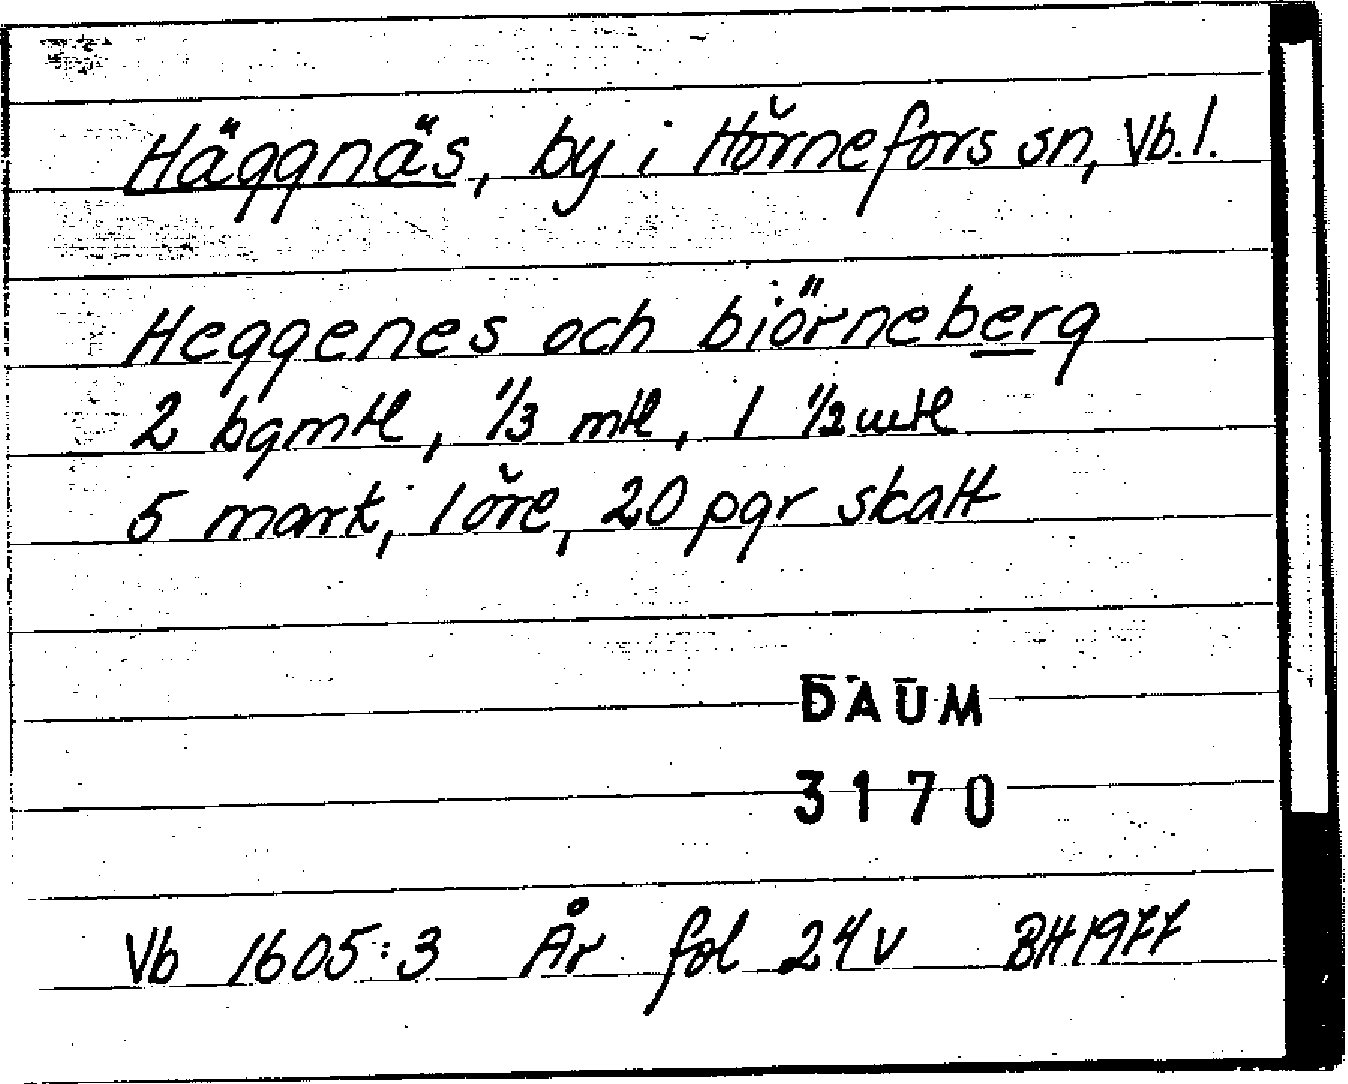 Häggnäs, by i Hörnefors sn, Vb.l.
Heggenes och biörneberg
2 bgmtl, 1/3 mtl, 1 1/2 mtl
5 mark, 1 öre, 20 pgr skatt
DAUM
3170
Vb 1605:3 År fol 24v BH 1977